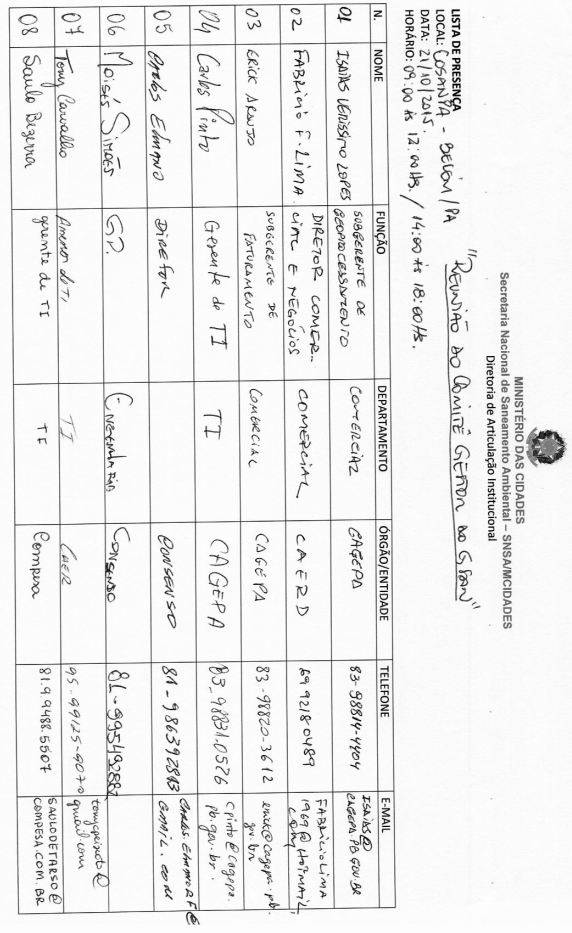 MINISTÉRIO DAS CIDADES
Secretaria Nacional de Saneamento Ambiental – SNSA/MCIDADES
Diretoria de Articulação Institucional
"REUNIÃO DO COMITÊ GESTOR DO GSAN"
LISTA DE PRESENÇA
LOCAL: COSANPA - BELÉM/PA
DATA: 21/10/2015.
HORÁRIO: 09:00 ÀS 12:00HS. / 14:00 ÀS 18:00HS.
N. NOME FUNÇÃO DEPARTAMENTO ÓRGÃO/ENTIDADE TELEFONE E-MAIL
01 ISAÍAS VERÍSSIMO LOPES SUBGERENTE DE GEOPROCESSAMENTO COMERCIAL CAGEPA 83-98814-4404 ISAIAS@CAGEPA.PB.GOV.BR
02 FABRÍCIO F. LIMA DIRETOR COMERCIAL E NEGÓCIOS COMERCIAL CAERD 69 9218-0489 FABRICIOLIMA1969@HOTMAIL.COM
03 ERICK ARAUJO SUBGERENTE DE FATURAMENTO COMERCIAL CAGEPA 83-98820-3612 erick@cagepa.pb.gov.br
04 Carlos Pinto Gerente de TI TI CAGEPA 83_98831.0526 cpinto@cagepa.pb.gov.br.
05 CARLOS DIRETOR CONSENSO 81-986392813 GMAIL.COM
06 MOISÉS SIMÕES GP. CONSENSO
07 Tony Carvalho TI CAER 95-99125-9070 tonypeixoto@gmail.com
08 Saulo Bezerra gerente de TI TI Compesa 81.9.9488.5507 SAULODETARSO@COMPESA.COM.BR